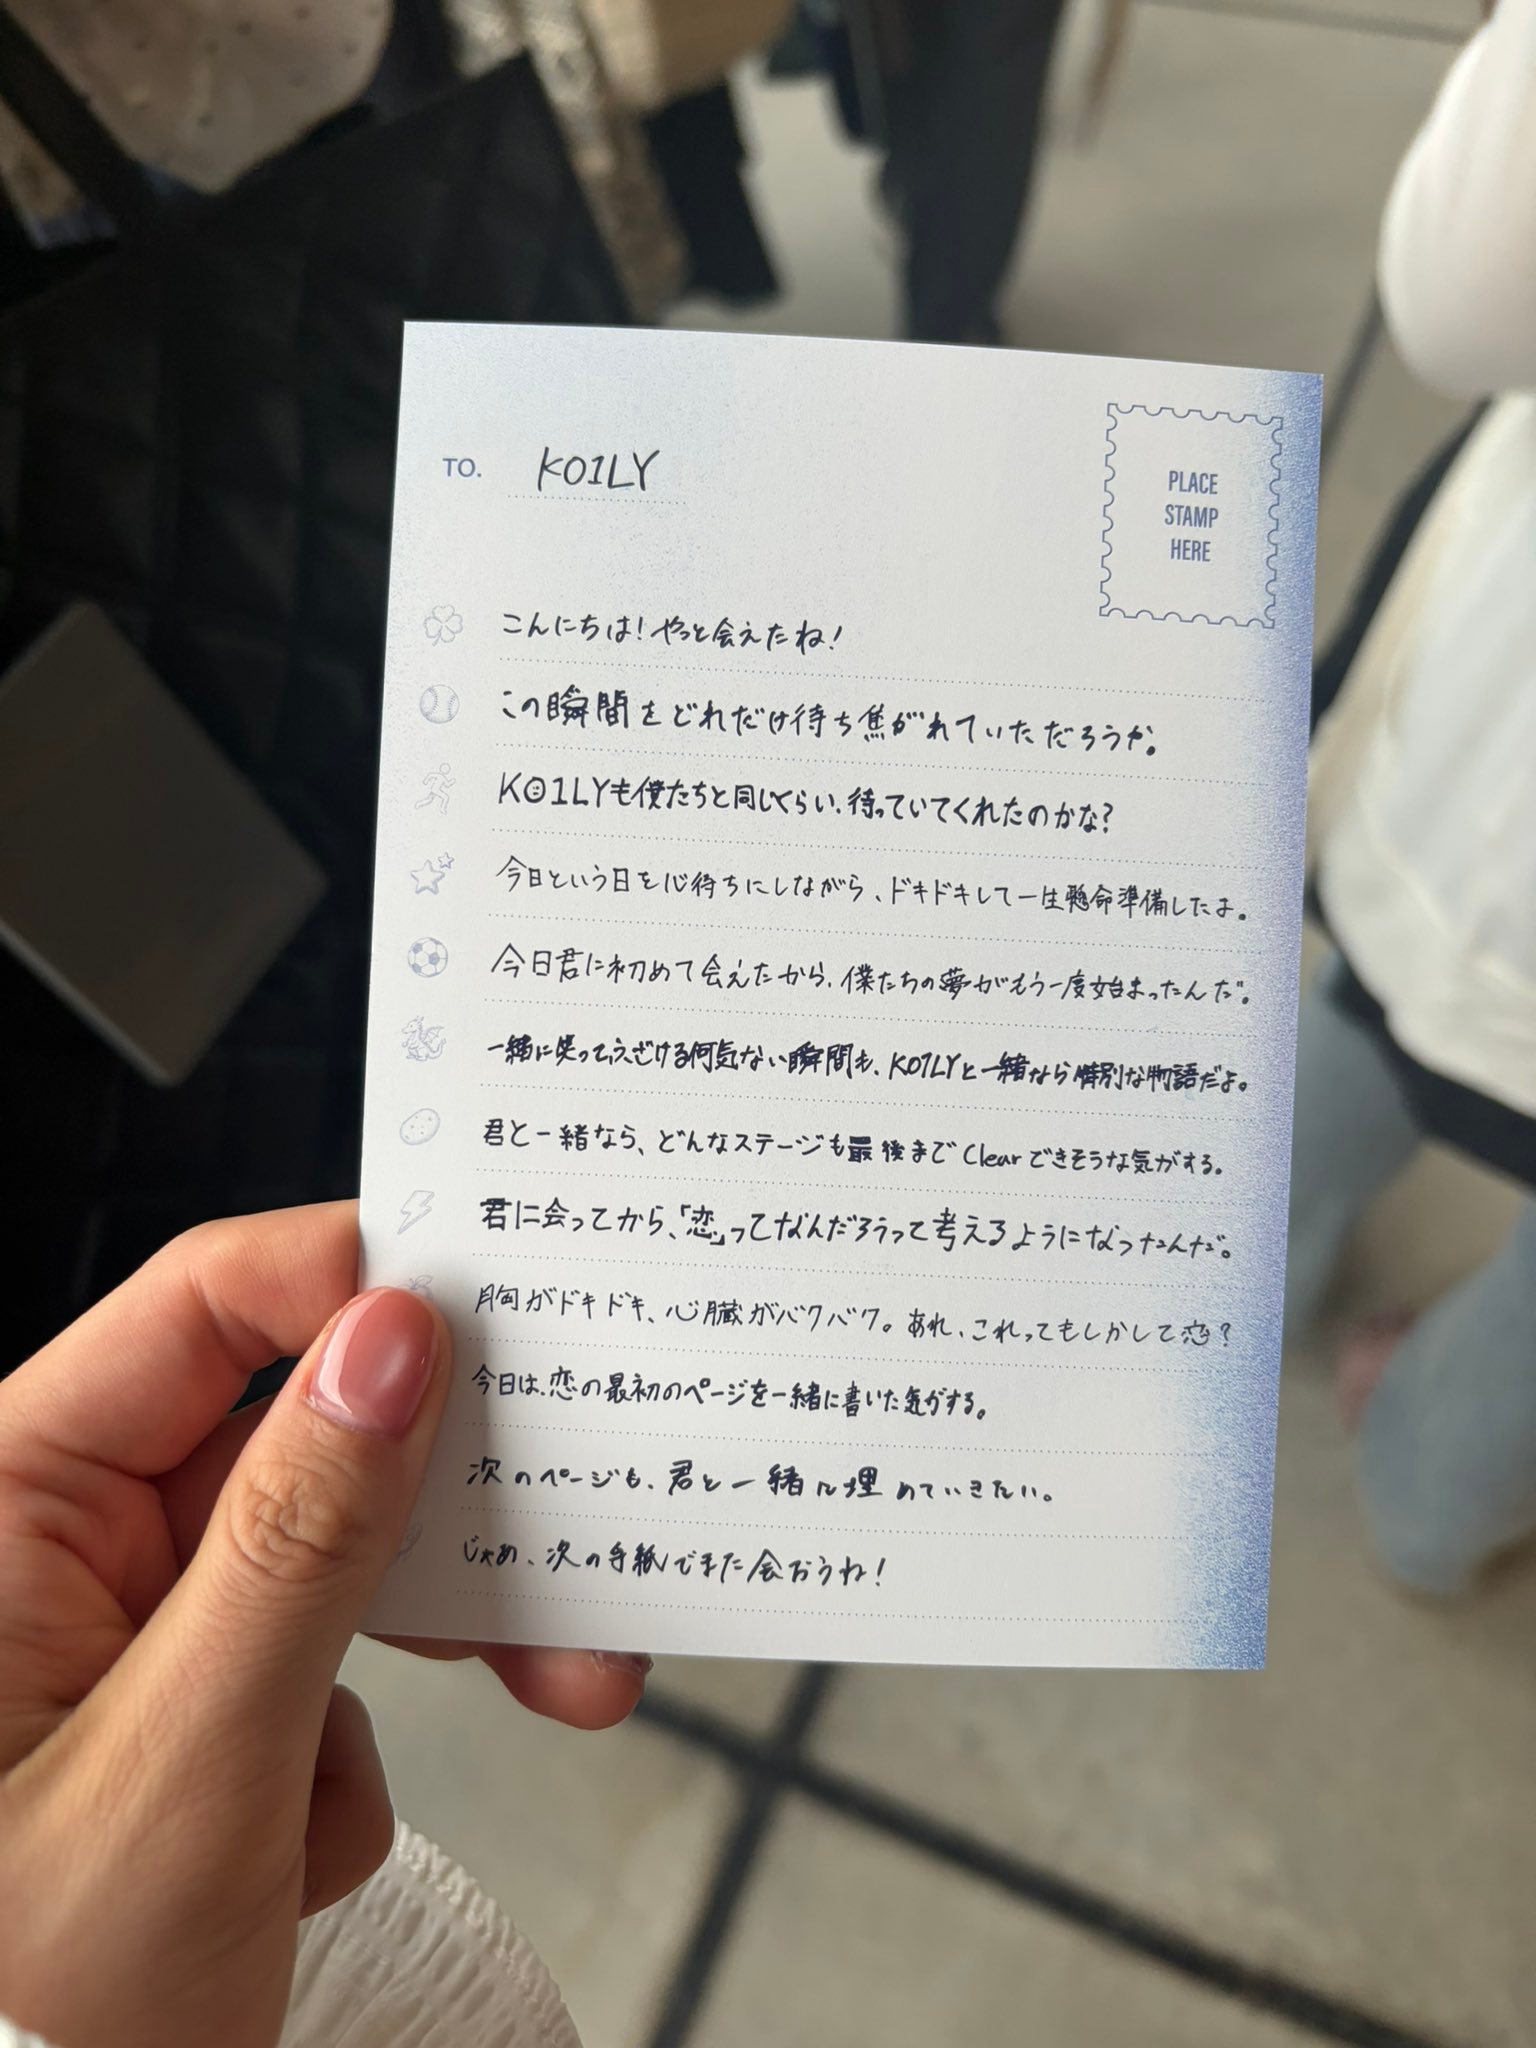 TO. KO1LY
PLACE
STAMP
HERE
こんにちは！やっと会えたね！
この瞬間をどれだけ待ち焦がれていただろうか。
KO1LYも僕たちと同じくらい、待っていてくれたのかな？
今日という日を心待ちにしながら、ドキドキして一生懸命準備したよ。
今日君に初めて会えたから、僕たちの夢がもう一度始まったんだ。
一緒に笑ってふざける何気ない瞬間も、KO1LYと一緒なら特別な物語だよ。
君と一緒なら、どんなステージも最後までClearできそうな気がする。
君に会ってから、「恋」ってなんだろうって考えるようになったんだ。
胸がドキドキ、心臓がバクバク。あれ、これってもしかして恋？
今日は、恋の最初のページを一緒に書いた気がする。
次のページも、君と一緒に埋めていきたい。
じゃあ、次の手紙でまた会おうね！